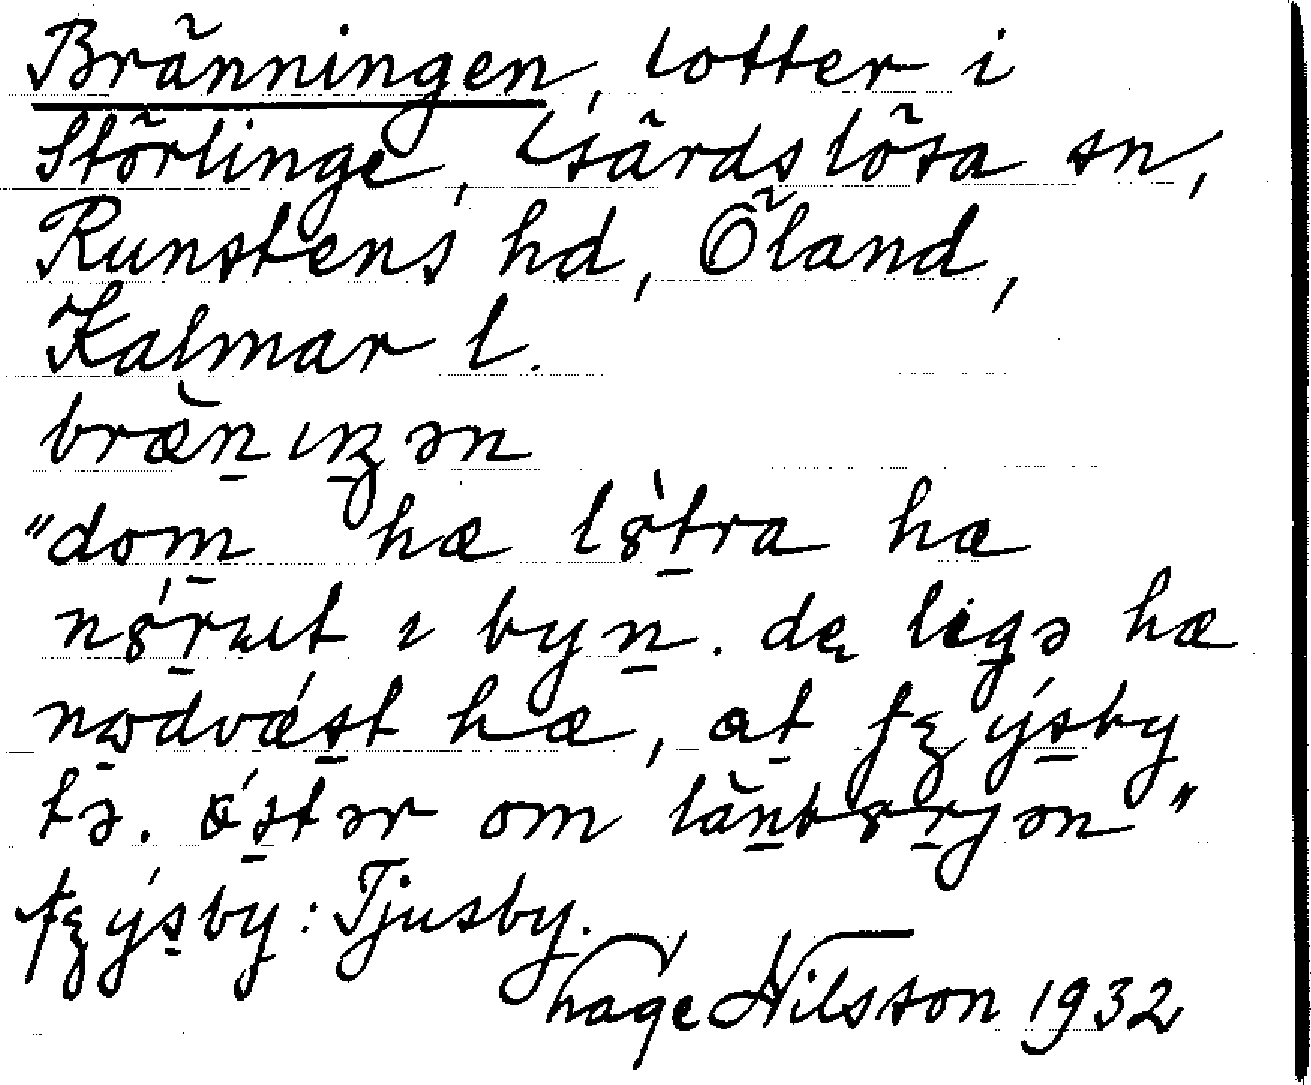 Bränningen, lotter i
Störlinge, Gärdslösa sn,
Runstens hd, Öland,
Kalmar l.
bræ̀n̲ıŋən
"dom̲ hæ lȣ̀t̲ra hæ
nȣ́r̲ut ı byn̲. dę lig̲ə hæ
nǝdvǽs̲t hæ, at̲ ʈʂýs̲by
tə. ǿs̲tər om lǎn̲tȣr̲jən"
ʈʂýs̲by: Tjusby.
Hage Nilsson 1932